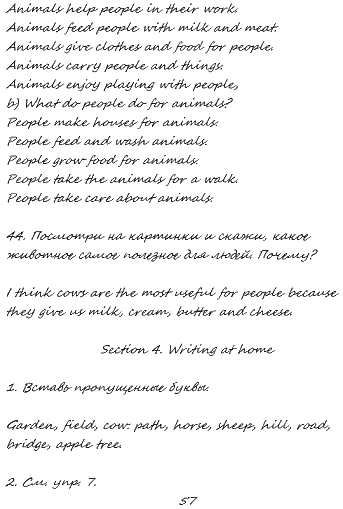 Animals help people in their work.
Animals feed people with milk and meat.
Animals give clothes and food for people.
Animals carry people and things.
Animals enjoy playing with people,
b) What do people do for animals?
People make houses for animals.
People feed and wash animals.
People grow food for animals.
People take the animals for a walk.
People take care about animals.
44. Посмотри на картинки и скажи, какое
животное самое полезное для людей. Почему?
I think cows are the most useful for people because
they give us milk, cream, butter and cheese.
Section 4. Writing at home
1. Вставь пропущенные буквы.
Garden, field, cow. path, horse, sheep, hill, road,
bridge, apple tree.
2. См. упр. 7.
57